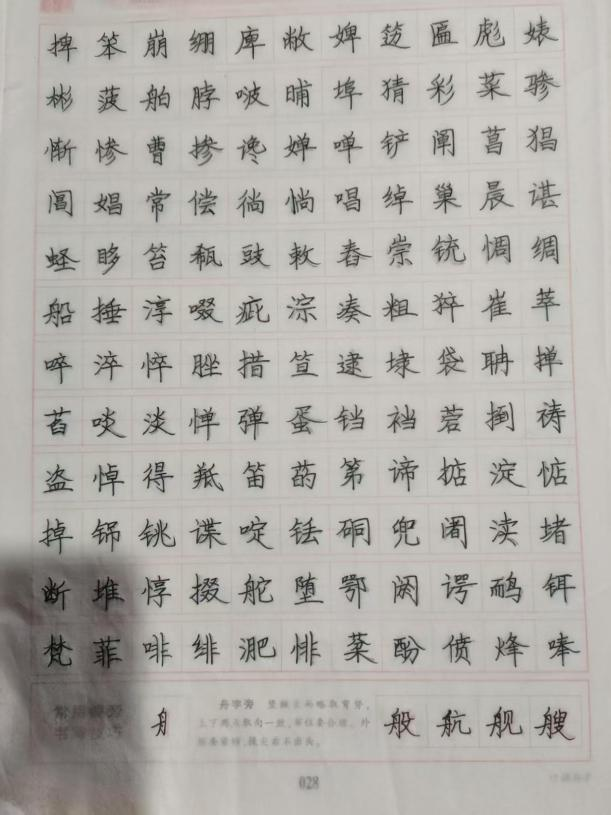 捭 笨 崩 绷 庳 敝 婢 笾 匾 彪 婊
彬 菠 舶 脖 啵 晡 埠 猜 彩 菜 骖
惭 惨 曹 掺 谗 婵 啴 铲 阐 菖 猖
阊 娼 常 偿 徜 惝 唱 绰 巢 晨 谌
蛏 眵 笞 瓻 豉 敕 舂 崇 铳 惆 绸
船 捶 淳 啜 疵 淙 凑 粗 猝 崔 萃
啐 淬 悴 脞 措 笪 逮 埭 袋 聃 掸
萏 啖 淡 惮 弹 蛋 铛 裆 菪 捯 祷
盗 悼 得 羝 笛 菂 第 谛 掂 淀 惦
掉 铞 铫 谍 啶 铥 硐 兜 阇 渎 堵
断 堆 惇 掇 舵 堕 鄂 阏 谔 鸸 铒
梵 菲 啡 绯 淝 悱 棻 酚 偾 烽 唪
常用偏旁
书写技巧
舟字旁 竖撇长而略取背势，
上下两点取向一致，布位要合理。外
框要窄瘦，提尖右不出头。
般 航 舰 艘
028